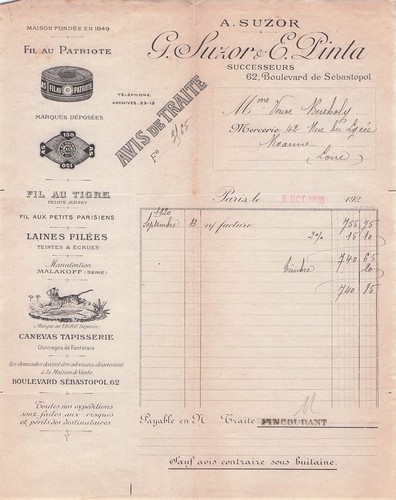 MAISON FONDÉE EN 1849
FIL AU PATRIOTE
AS FIL AU PATRIOTE
MARQUES DÉPOSÉES
150
AS
150
FIL AU TIGRE
PELOTE JERSEY
FIL AUX PETITS PARISIENS
LAINES FILÉES
TEINTES & ÉCRUES
Manutention
MALAKOFF (SEINE)
(Marque au TIGRE Déposée)
CANEVAS TAPISSERIE
Ouvrages de Fantaisie
Les demandes doivent être adressées directement
à la Maison de Vente,
BOULEVARD SÉBASTOPOL 62
Toutes nos expéditions
sont faites aux risques
et périls des destinataires.
A. SUZOR
G. Suzor & E. Pinta
SUCCESSEURS
62, Boulevard de Sébastopol
TÉLÉPHONE
ARCHIVES. 53-12
AVIS DE TRAITE
F°
Mme Veuve Bertholy
Mercerie 42 Rue du Lycée
Roanne
Loire
Paris le 5 OCT 1920 192
1920
Septembre 13 n/ facture 755 75
2% 15 10
740 65
timbre 20
740 85
Payable en N Traite FINCOURANT
Sauf avis contraire sous huitaine.